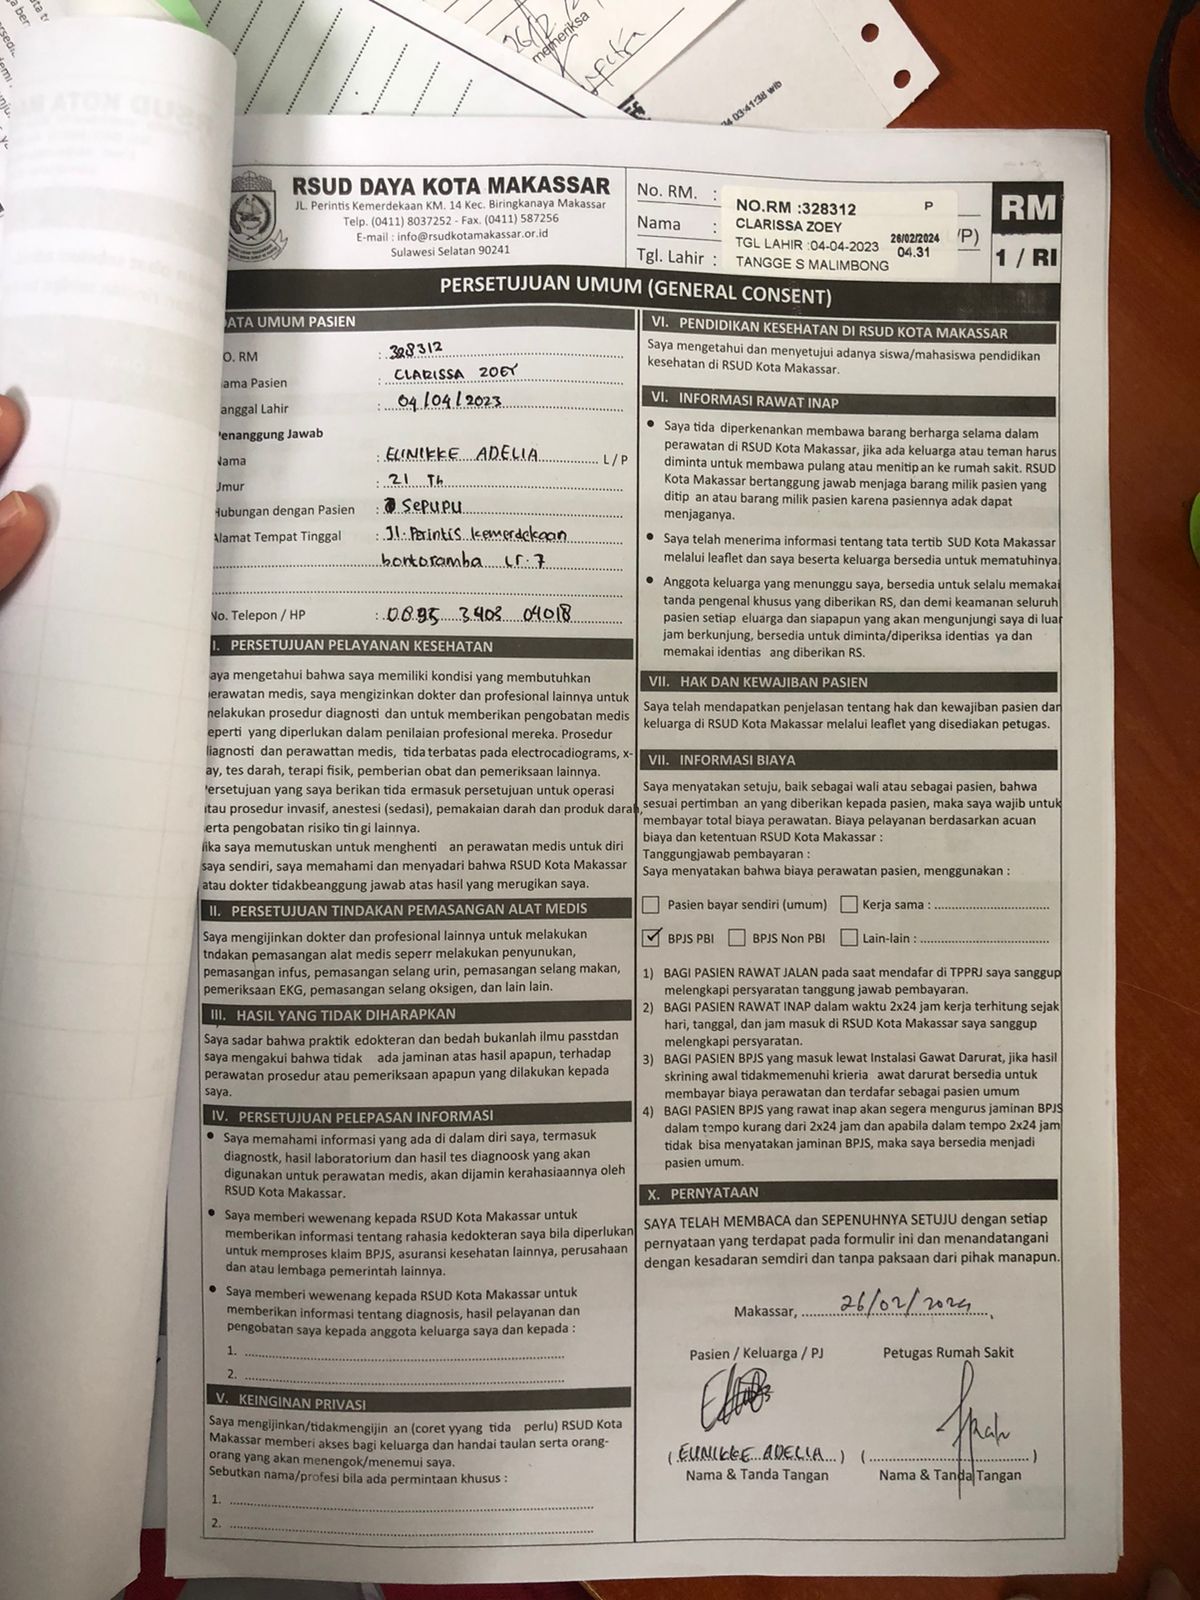 26/2
memeriksa
24 03:41:38 wib
RSUD DAYA KOTA MAKASSAR
JL. Perintis Kemerdekaan KM. 14 Kec. Biringkanaya Makassar
Telp. (0411) 8037252 - Fax. (0411) 587256
E-mail : info@rsudkotamakassar.or.id
Sulawesi Selatan 90241
No. RM. :
Nama :
Tgl. Lahir :
NO.RM :328312 P
CLARISSA ZOEY
TGL LAHIR :04-04-2023 26/02/2024
TANGGE S MALIMBONG 04.31
/P)
RM
1 / RI
PERSETUJUAN UMUM (GENERAL CONSENT)
DATA UMUM PASIEN
O. RM : 328312
ama Pasien : CLARISSA ZOEY
anggal Lahir : 04/04/2023
Penanggung Jawab
Nama : EUNIKKE ADELIA L/P
Umur : 21 Th
Hubungan dengan Pasien : SEPUPU
Alamat Tempat Tinggal : Jl. Perintis kemerdekaan
bontoramba Lr. 7
No. Telepon / HP : 0895 3403 04018
I. PERSETUJUAN PELAYANAN KESEHATAN
aya mengetahui bahwa saya memiliki kondisi yang membutuhkan
erawatan medis, saya mengizinkan dokter dan profesional lainnya untuk
melakukan prosedur diagnosti dan untuk memberikan pengobatan medis
eperti yang diperlukan dalam penilaian profesional mereka. Prosedur
iagnosti dan perawattan medis, tida terbatas pada electrocadiograms, x-
ay, tes darah, terapi fisik, pemberian obat dan pemeriksaan lainnya.
Persetujuan yang saya berikan tida ermasuk persetujuan untuk operasi
atau prosedur invasif, anestesi (sedasi), pemakaian darah dan produk darah,
erta pengobatan risiko tin gi lainnya.
ika saya memutuskan untuk menghenti an perawatan medis untuk diri
saya sendiri, saya memahami dan menyadari bahwa RSUD Kota Makassar
atau dokter tidakbeanggung jawab atas hasil yang merugikan saya.
II. PERSETUJUAN TINDAKAN PEMASANGAN ALAT MEDIS
Saya mengijinkan dokter dan profesional lainnya untuk melakukan
tndakan pemasangan alat medis seperr melakukan penyunukan,
pemasangan infus, pemasangan selang urin, pemasangan selang makan,
pemeriksaan EKG, pemasangan selang oksigen, dan lain lain.
III. HASIL YANG TIDAK DIHARAPKAN
Saya sadar bahwa praktik edokteran dan bedah bukanlah ilmu passtdan
saya mengakui bahwa tidak ada jaminan atas hasil apapun, terhadap
perawatan prosedur atau pemeriksaan apapun yang dilakukan kepada
saya.
IV. PERSETUJUAN PELEPASAN INFORMASI
• Saya memahami informasi yang ada di dalam diri saya, termasuk
diagnostk, hasil laboratorium dan hasil tes diagnoosk yang akan
digunakan untuk perawatan medis, akan dijamin kerahasiaannya oleh
RSUD Kota Makassar.
• Saya memberi wewenang kepada RSUD Kota Makassar untuk
memberikan informasi tentang rahasia kedokteran saya bila diperlukan
untuk memproses klaim BPJS, asuransi kesehatan lainnya, perusahaan
dan atau lembaga pemerintah lainnya.
• Saya memberi wewenang kepada RSUD Kota Makassar untuk
memberikan informasi tentang diagnosis, hasil pelayanan dan
pengobatan saya kepada anggota keluarga saya dan kepada :
1.
2.
V. KEINGINAN PRIVASI
Saya mengijinkan/tidakmengijin an (coret yyang tida perlu) RSUD Kota
Makassar memberi akses bagi keluarga dan handai taulan serta orang-
orang yang akan menengok/menemui saya.
Sebutkan nama/profesi bila ada permintaan khusus :
1.
2.
VI. PENDIDIKAN KESEHATAN DI RSUD KOTA MAKASSAR
Saya mengetahui dan menyetujui adanya siswa/mahasiswa pendidikan
kesehatan di RSUD Kota Makassar.
VI. INFORMASI RAWAT INAP
• Saya tida diperkenankan membawa barang berharga selama dalam
perawatan di RSUD Kota Makassar, jika ada keluarga atau teman harus
diminta untuk membawa pulang atau menitip an ke rumah sakit. RSUD
Kota Makassar bertanggung jawab menjaga barang milik pasien yang
ditip an atau barang milik pasien karena pasiennya adak dapat
menjaganya.
• Saya telah menerima informasi tentang tata tertib SUD Kota Makassar
melalui leaflet dan saya beserta keluarga bersedia untuk mematuhinya.
• Anggota keluarga yang menunggu saya, bersedia untuk selalu memakai
tanda pengenal khusus yang diberikan RS, dan demi keamanan seluruh
pasien setiap eluarga dan siapapun yang akan mengunjungi saya di luar
jam berkunjung, bersedia untuk diminta/diperiksa identias ya dan
memakai identias ang diberikan RS.
VII. HAK DAN KEWAJIBAN PASIEN
Saya telah mendapatkan penjelasan tentang hak dan kewajiban pasien dan
keluarga di RSUD Kota Makassar melalui leaflet yang disediakan petugas.
VII. INFORMASI BIAYA
Saya menyatakan setuju, baik sebagai wali atau sebagai pasien, bahwa
sesuai pertimban an yang diberikan kepada pasien, maka saya wajib untuk
membayar total biaya perawatan. Biaya pelayanan berdasarkan acuan
biaya dan ketentuan RSUD Kota Makassar :
Tanggungjawab pembayaran :
Saya menyatakan bahwa biaya perawatan pasien, menggunakan :
Pasien bayar sendiri (umum) Kerja sama :
BPJS PBI BPJS Non PBI Lain-lain :
1) BAGI PASIEN RAWAT JALAN pada saat mendafar di TPPRJ saya sanggup
melengkapi persyaratan tanggung jawab pembayaran.
2) BAGI PASIEN RAWAT INAP dalam waktu 2x24 jam kerja terhitung sejak
hari, tanggal, dan jam masuk di RSUD Kota Makassar saya sanggup
melengkapi persyaratan.
3) BAGI PASIEN BPJS yang masuk lewat Instalasi Gawat Darurat, jika hasil
skrining awal tidakmemenuhi krieria awat darurat bersedia untuk
membayar biaya perawatan dan terdafar sebagai pasien umum
4) BAGI PASIEN BPJS yang rawat inap akan segera mengurus jaminan BPJS
dalam tempo kurang dari 2x24 jam dan apabila dalam tempo 2x24 jam
tidak bisa menyatakan jaminan BPJS, maka saya bersedia menjadi
pasien umum.
X. PERNYATAAN
SAYA TELAH MEMBACA dan SEPENUHNYA SETUJU dengan setiap
pernyataan yang terdapat pada formulir ini dan menandatangani
dengan kesadaran semdiri dan tanpa paksaan dari pihak manapun.
Makassar, 26/02/2024
Pasien / Keluarga / PJ Petugas Rumah Sakit
( EUNIKKE ADELIA ) ( )
Nama & Tanda Tangan Nama & Tanda Tangan